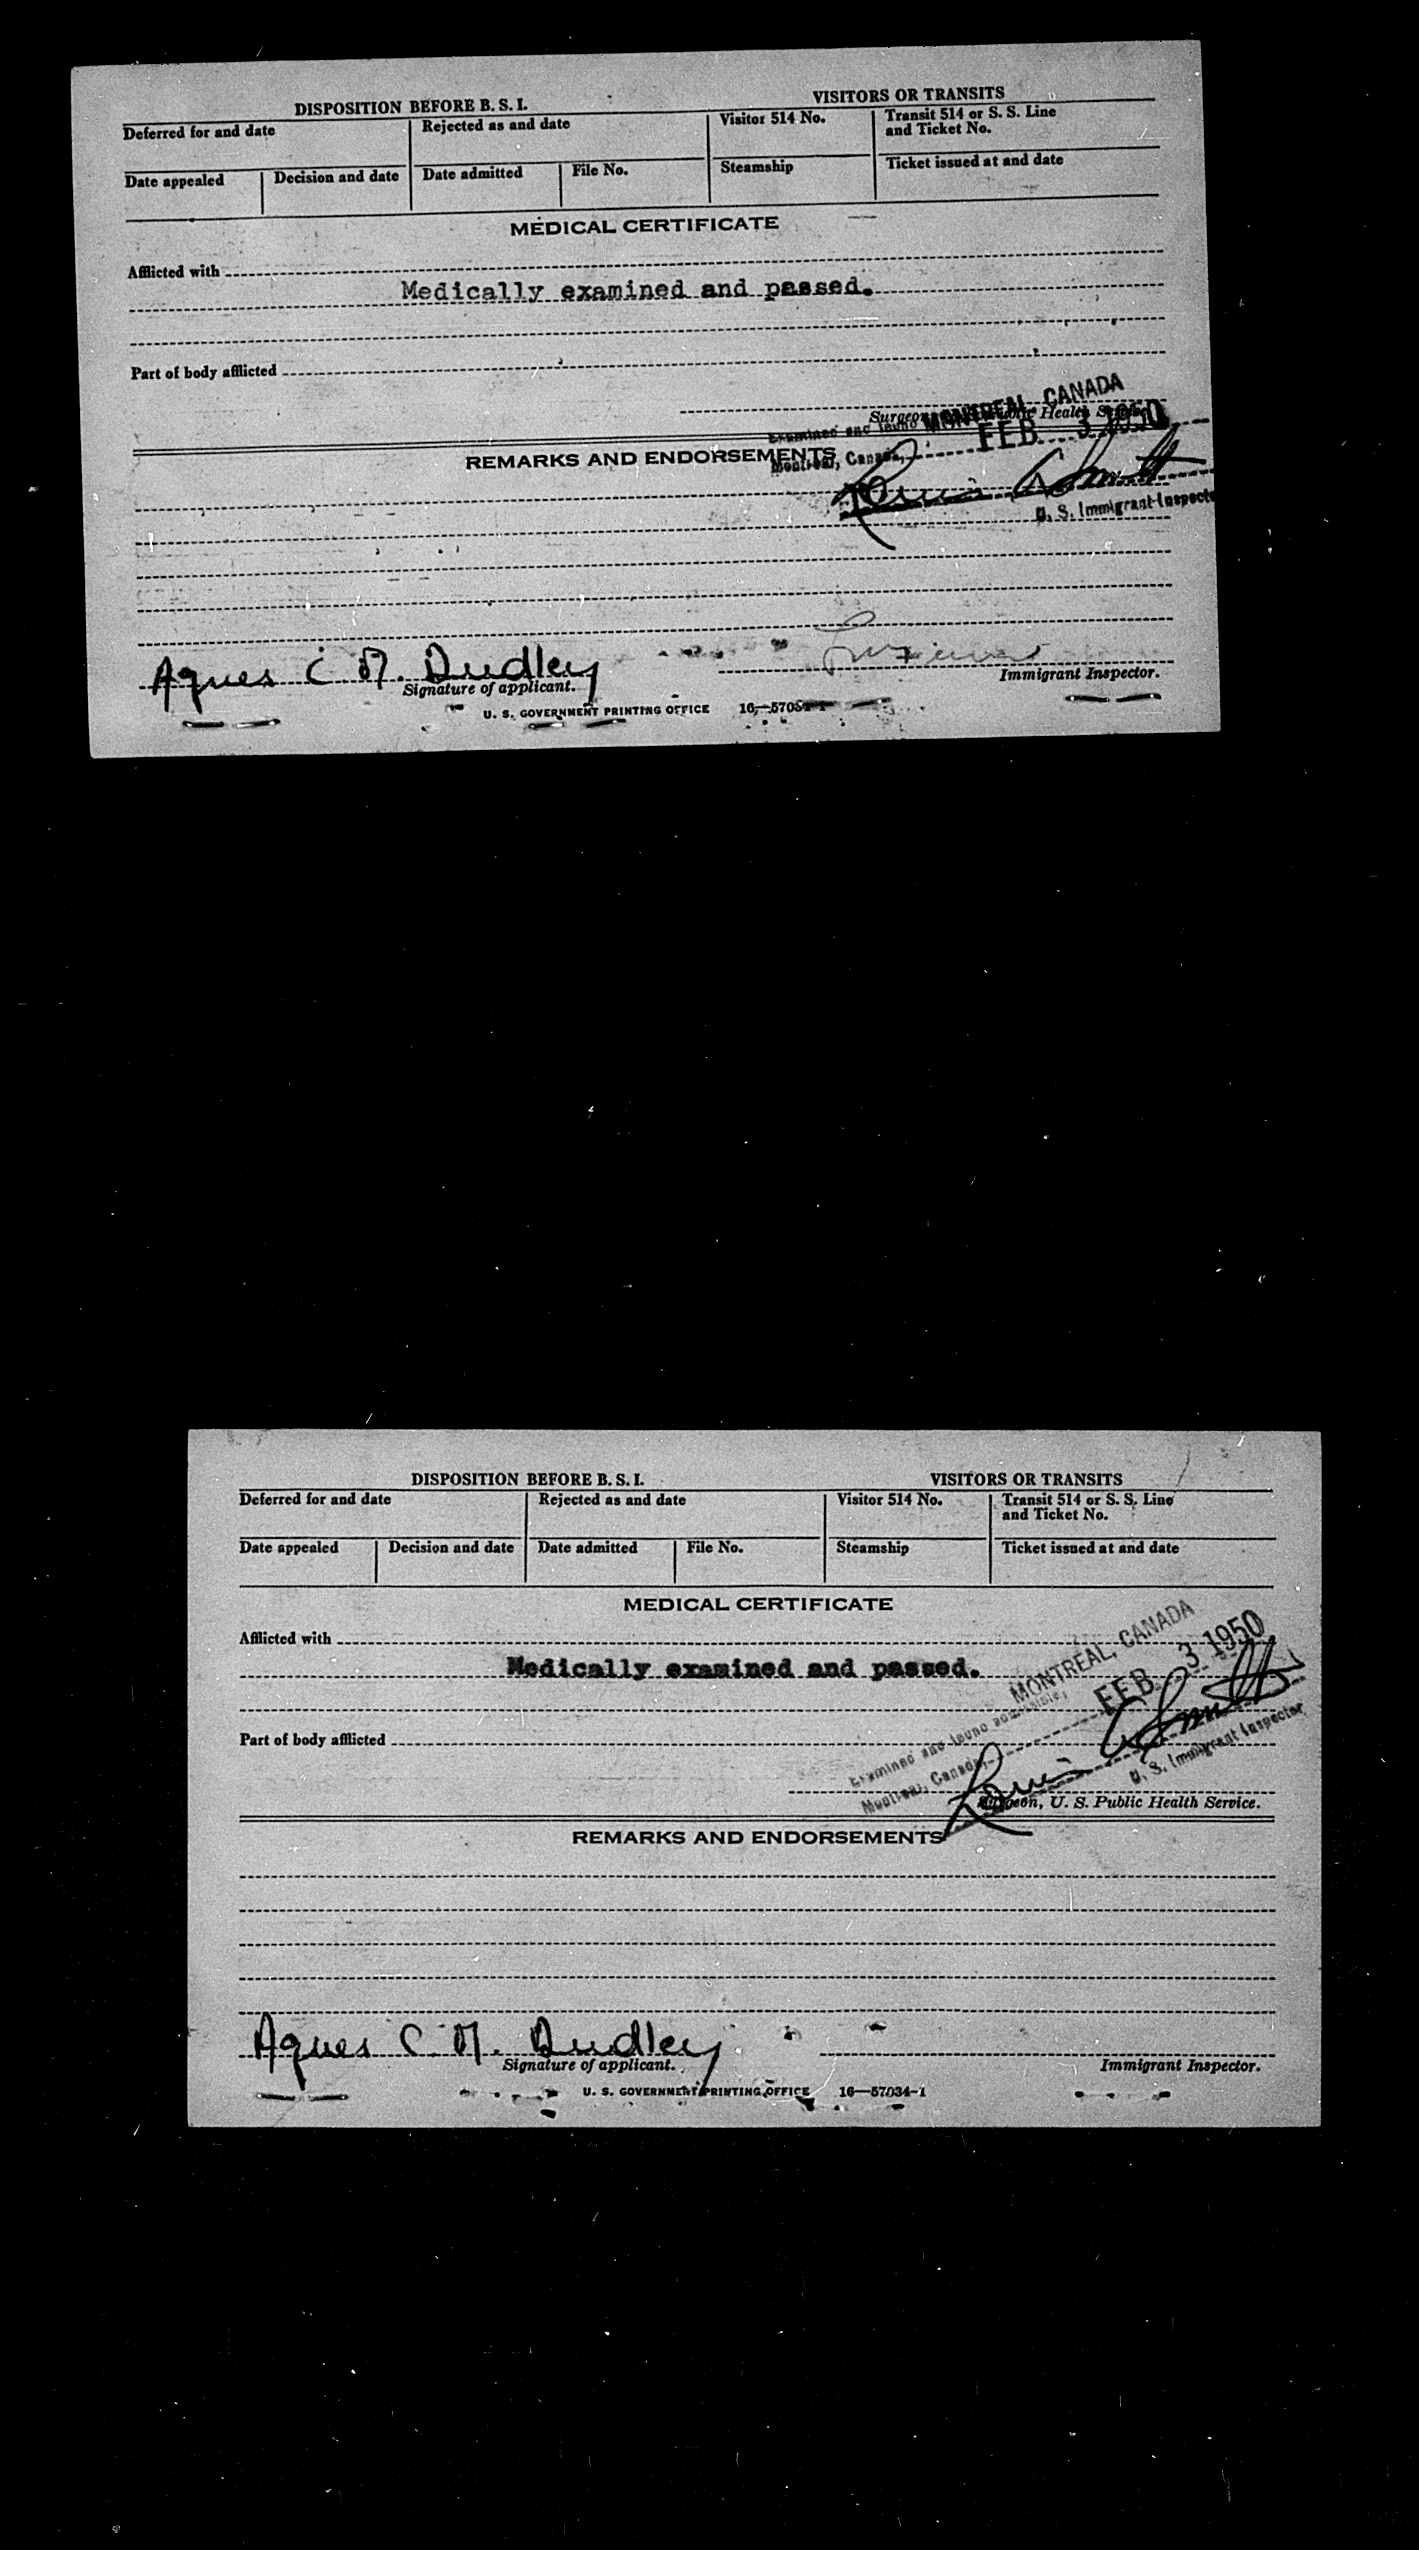 DISPOSITION BEFORE B. S. I. VISITORS OR TRANSITS
Deferred for and date Rejected as and date Visitor 514 No. Transit 514 or S. S. Line and Ticket No.
Date appealed Decision and date Date admitted File No. Steamship Ticket issued at and date
MEDICAL CERTIFICATE
Afflicted with
Medically examined and passed.
Part of body afflicted
MONTREAL, CANADA
Surgeon Public Health Service
Examined and found
FEB 3 1950
REMARKS AND ENDORSEMENTS
Montreal, Canada,
Smith
U. S. Immigrant Inspector
Agnes C M. Dudley
Signature of applicant.
Immigrant Inspector.
U. S. GOVERNMENT PRINTING OFFICE 16—57034-1
DISPOSITION BEFORE B. S. I. VISITORS OR TRANSITS
Deferred for and date Rejected as and date Visitor 514 No. Transit 514 or S. S. Line and Ticket No.
Date appealed Decision and date Date admitted File No. Steamship Ticket issued at and date
MEDICAL CERTIFICATE
Afflicted with
MONTREAL, CANADA
Medically examined and passed.
FEB 3 1950
Examined and found admissible,
Part of body afflicted
Montreal, Canada,
Smith
U. S. Immigrant Inspector
Surgeon, U. S. Public Health Service.
REMARKS AND ENDORSEMENTS
Agnes C. M. Dudley
Signature of applicant.
Immigrant Inspector.
U. S. GOVERNMENT PRINTING OFFICE 16—57034-1